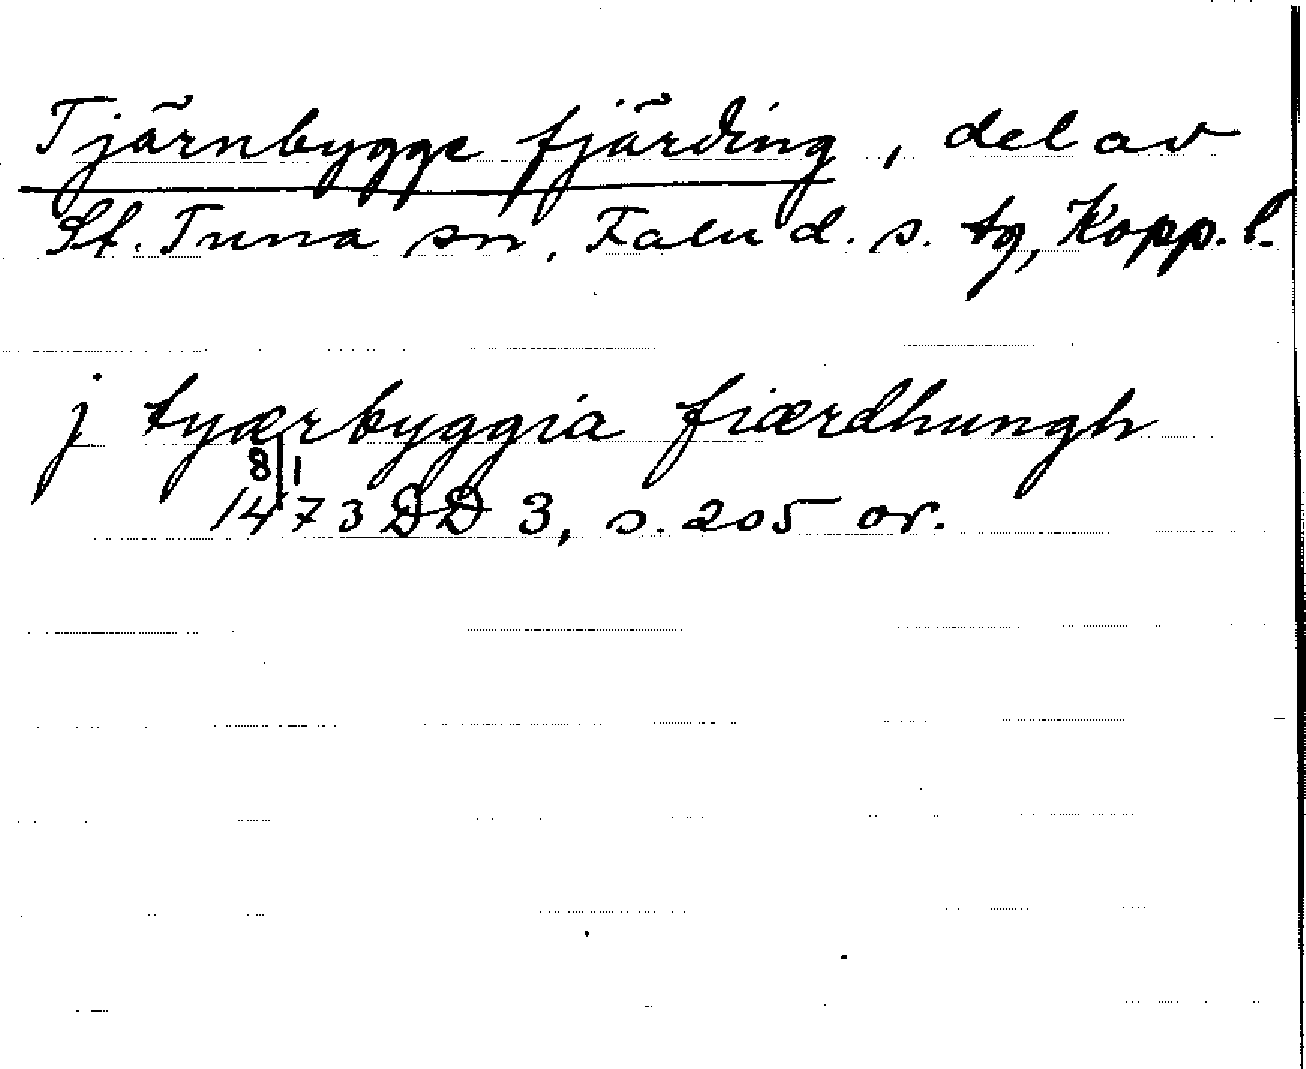 Tjärnbygge fjärding, del av
St. Tuna sn, Falu d. s. tg, Kopp. l.
j tyærbyggia fiærdhungh
8/1
1473 DD 3, s. 205 or.